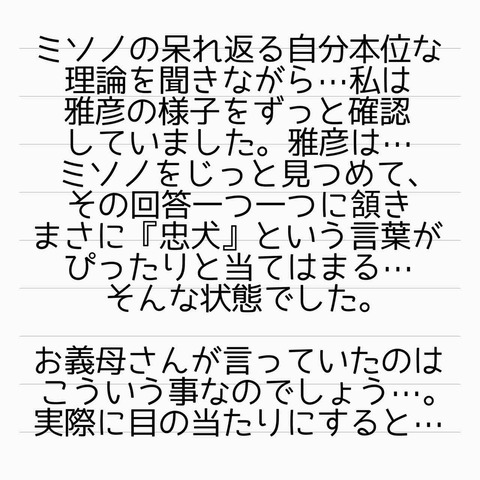 ミソノの呆れ返る自分本位な
理論を聞きながら…私は
雅彦の様子をずっと確認
していました。雅彦は…
ミソノをじっと見つめて、
その回答一つ一つに頷き
まさに『忠犬』という言葉が
ぴったりと当てはまる…
そんな状態でした。
お義母さんが言っていたのは
こういう事なのでしょう…。
実際に目の当たりにすると…